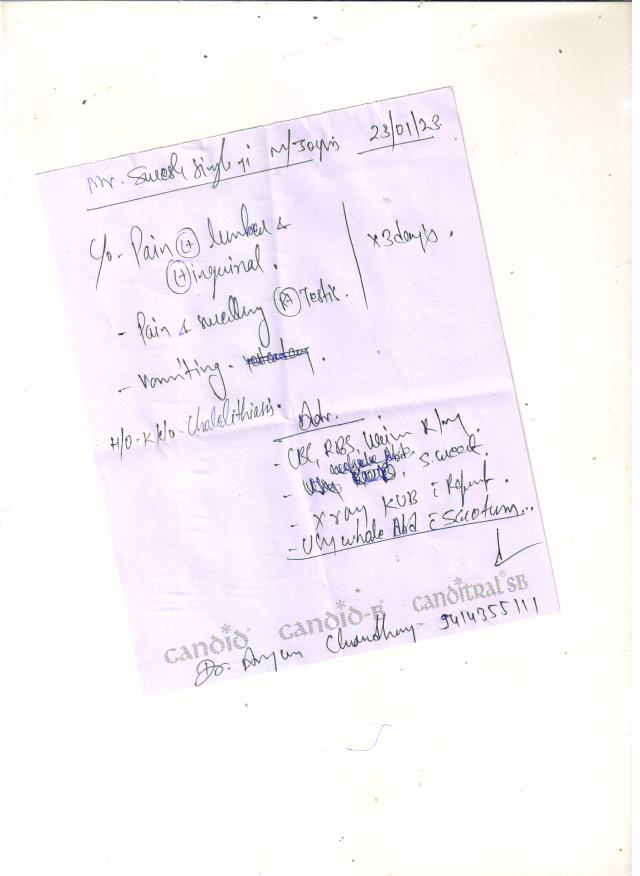 Mr. Suresh Singh ji M/30yrs 23/01/23.
C/o - Pain (Lt) lumbar &
(Lt) inguinal.
x 3 days.
- Pain & swelling (Rt) Testis.
- vomiting.
H/O - K/c/o - Cholelithiasis.
Adv.
- CBC, RBS, Urine R/m,
-
- X ray KUB c Report.
- USG whole Abd c Scrotum...
candid® candid-B® canditral® SB
Dr. Choudhary 9414355111